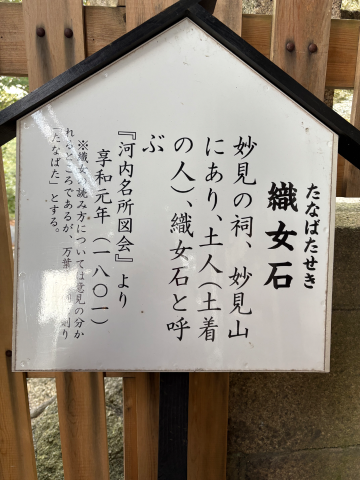 たなばたせき
織女石
妙見の祠、妙見山
にあり、土人（土着
の人）、織女石と呼
ぶ
『河内名所図会』より
享和元年（一八〇一）
※織女の読み方については意見の分か
れるところであるが、万葉の則り
「たなばた」とする。